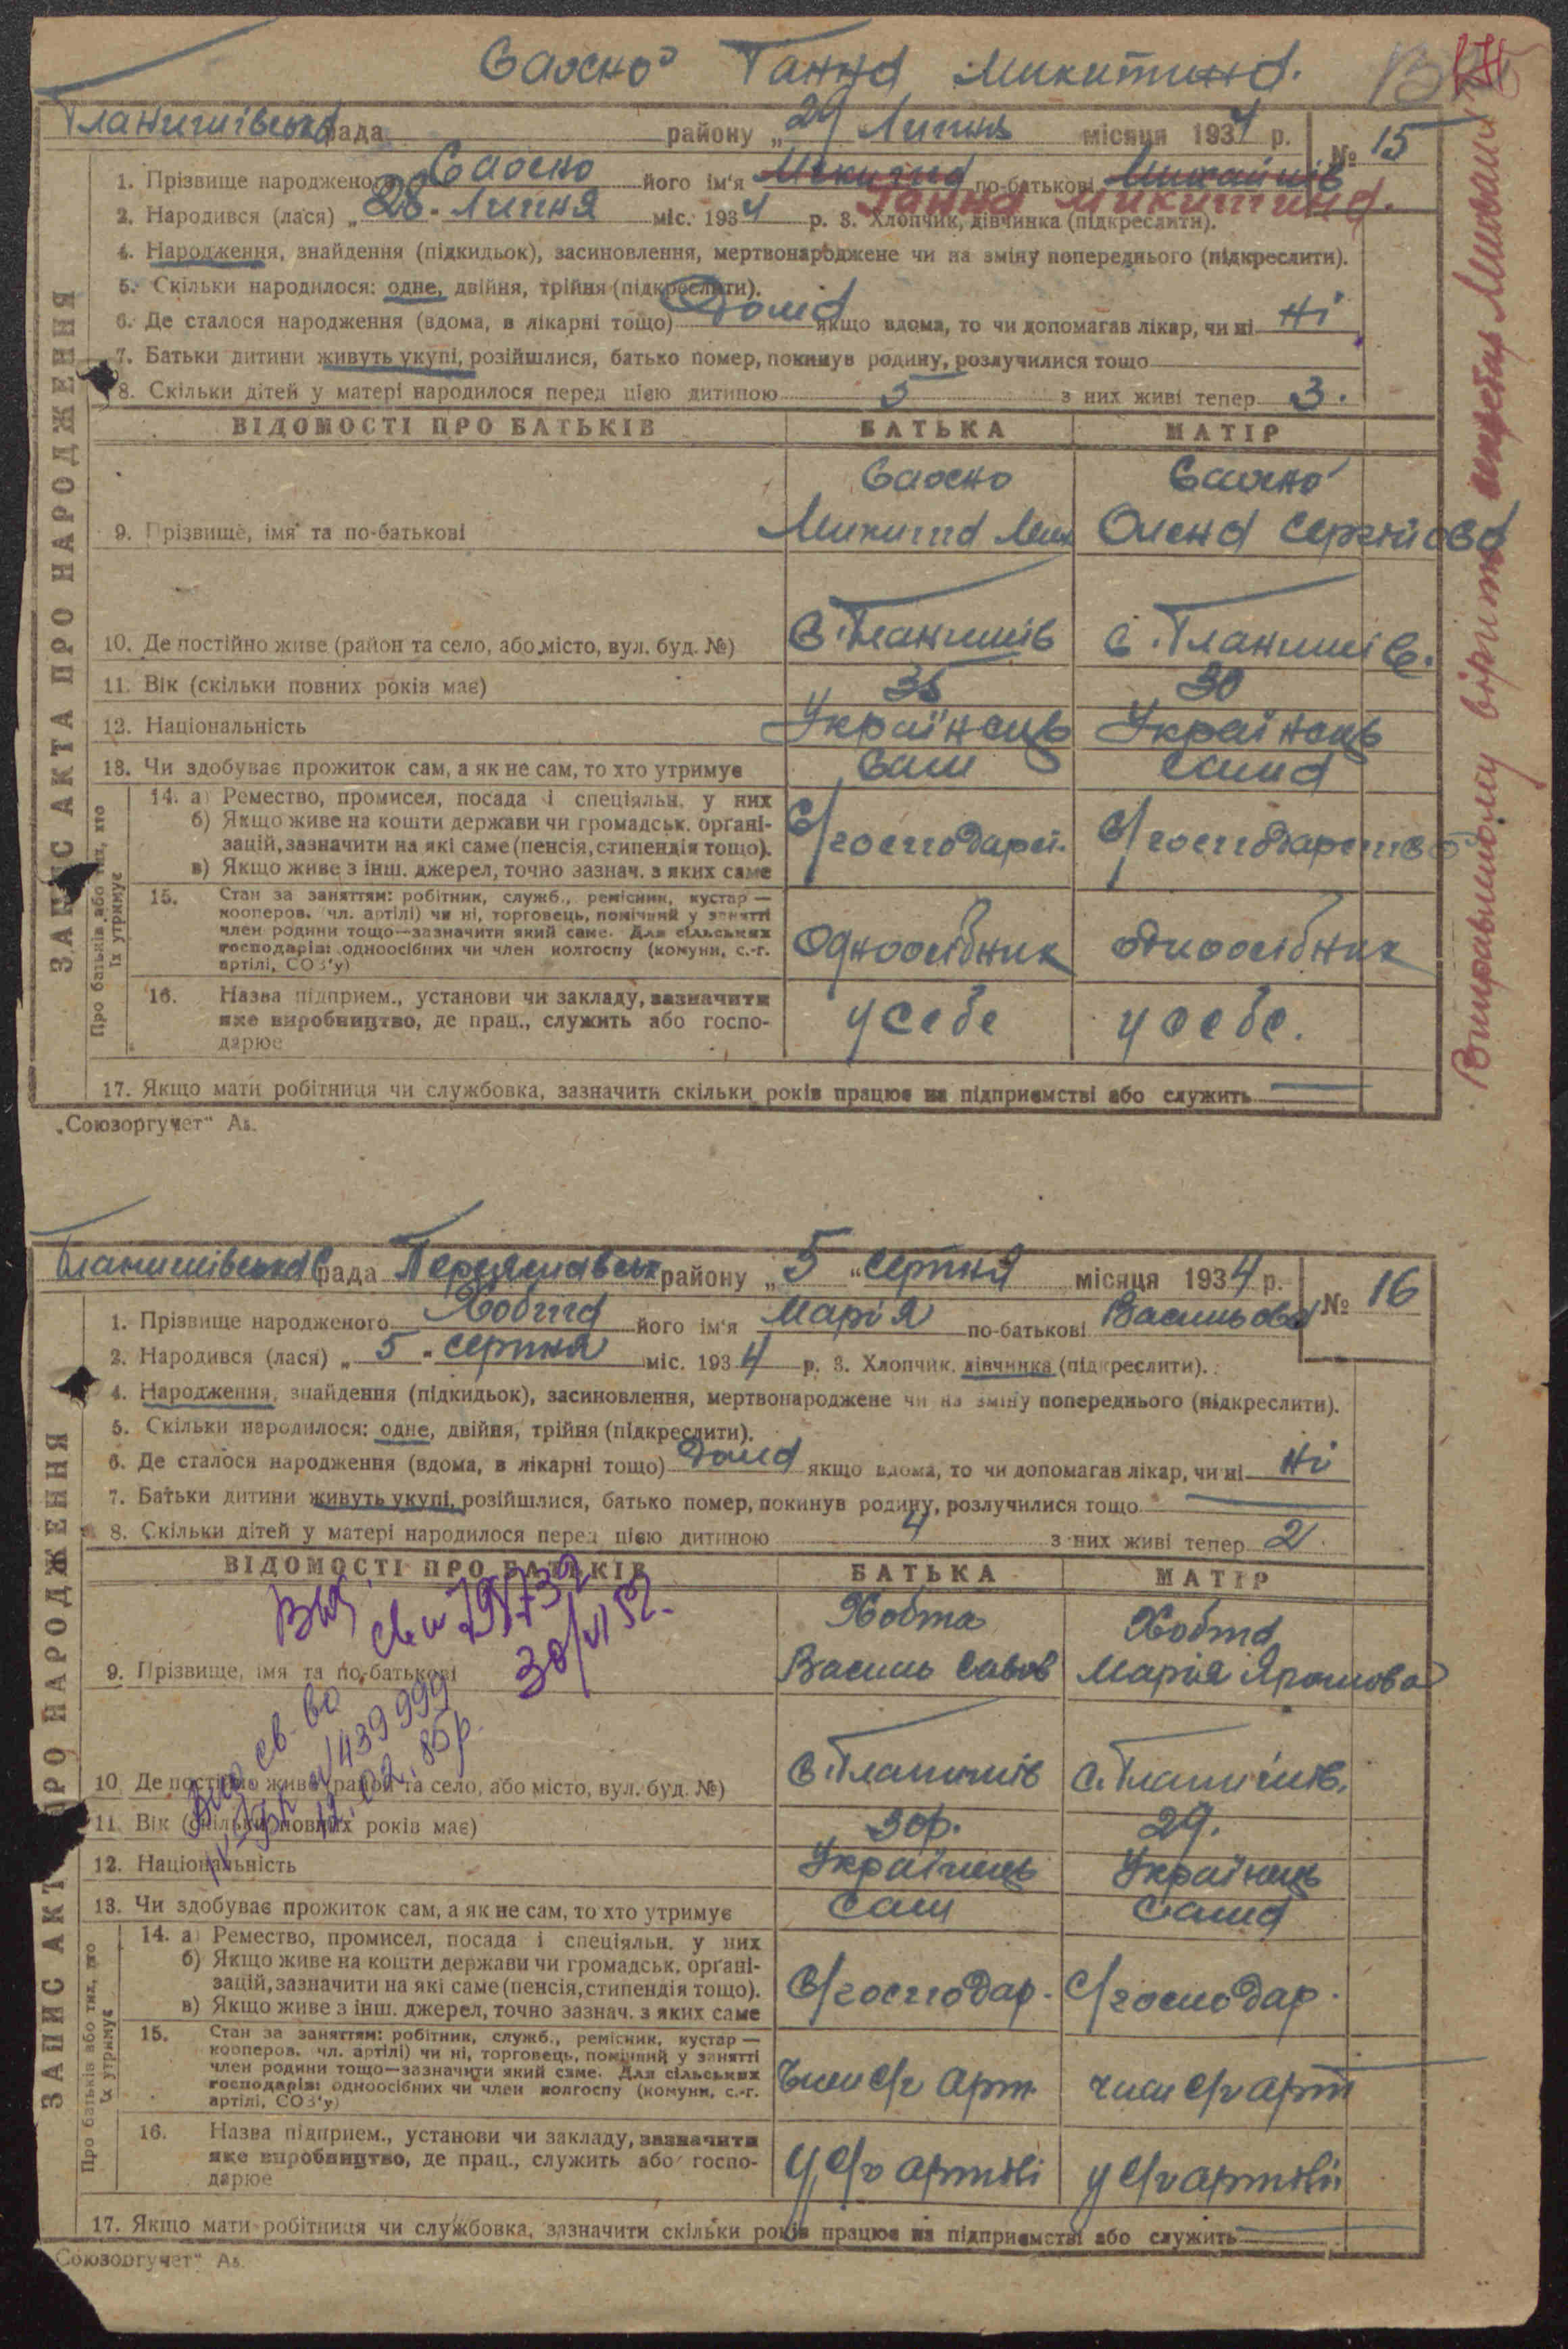 Ганна Микитина.
рада району „29 Липня місяця 1934 р. № 15
ЗАПИС АКТА ПРО НАРОДЖЕННЯ
1. Прізвище народженого його ім'я по-батькові
Ганна Микитина.
2. Народився (лася) „28. Липня міс. 1934 р. 3. Хлопчик, дівчинка (підкреслити).
4. Народження, знайдення (підкидьок), засиновлення, мертвонароджене чи на зміну попереднього (підкреслити).
5. Скільки народилося: одне, двійня, трійня (підкреслити).
6. Де сталося народження (вдома, в лікарні тощо) Дома якщо вдома, то чи допомагав лікар, чи ні Ні
7. Батьки дитини живуть укупі, розійшлися, батько помер, покинув родину, розлучилися тощо
8. Скільки дітей у матері народилося перед цією дитиною 5 з них живі тепер 3.
ВІДОМОСТІ ПРО БАТЬКІВ БАТЬКА МАТІР
9. Прізвище, імя та по-батькові Микита Мих Олена Сергійова
10. Де постійно живе (район та село, або місто, вул. буд. №) С. Гланишів с. Гланишів.
11. Вік (скільки повних років має) 35 30
12. Національність Українець Українець
13. Чи здобуває прожиток сам, а як не сам, то хто утримує Сам сама
Про батьків або тих, хто їх утримує
14. а) Ремество, промисел, посада і спеціяльн. у них
б) Якщо живе на кошти держави чи громадськ. орґані-
зацій, зазначити на які саме (пенсія, стипендія тощо).
в) Якщо живе з інш. джерел, точно зазнач. з яких саме
С/господарст. С/господарство
15. Стан за заняттям: робітник, служб., ремісник, кустар —
кооперов. чл. артілі) чи ні, торговець, помічний у занятті
член родини тощо—зазначити який саме. Для сільських
господарів: одноосібних чи член колгоспу (комуни, с.-г.
артілі, СОЗ'у)
Одноосібник одноосібник
16. Назва підприєм., установи чи закладу, зазначити
яке виробництво, де прац., служить або госпо-
дарює
у себе у себе.
17. Якщо мати робітниця чи службовка, зазначити скільки років працює на підприємстві або служить
„Союзоргучет" Аз.
Виправленому вірити
Гланишівська рада Переяславськ району „5 “ серпня місяця 1934 р. № 16
ЗАПИС АКТА ПРО НАРОДЖЕННЯ
1. Прізвище народженого Хобта його ім'я Марія по-батькові Васильова
2. Народився (лася) „5 „ серпня міс. 1934 р. 3. Хлопчик, дівчинка (підкреслити).
4. Народження, знайдення (підкидьок), засиновлення, мертвонароджене чи на зміну попереднього (підкреслити).
5. Скільки народилося: одне, двійня, трійня (підкреслити).
6. Де сталося народження (вдома, в лікарні тощо) Дома якщо вдома, то чи допомагав лікар, чи ні Ні
7. Батьки дитини живуть укупі, розійшлися, батько помер, покинув родину, розлучилися тощо
8. Скільки дітей у матері народилося перед цією дитиною 4 з них живі тепер 2.
ВІДОМОСТІ ПРО БАТЬКІВ БАТЬКА МАТІР
Хобта Хобта
9. Прізвище, імя та по-батькові Василь Савов Марія Ярошова
10. Де постійно живе (район та село, або місто, вул. буд. №) С. Гланишів с. Гланишів.
11. Вік (скільки повних років має) 30р. 29.
12. Національність Українець Українець
13. Чи здобуває прожиток сам, а як не сам, то хто утримує Сам Сама
Про батьків або тих, хто їх утримує
14. а) Ремество, промисел, посада і спеціяльн. у них
б) Якщо живе на кошти держави чи громадськ. орґані-
зацій, зазначити на які саме (пенсія, стипендія тощо).
в) Якщо живе з інш. джерел, точно зазнач. з яких саме
С/господар. С/господар.
15. Стан за заняттям: робітник, служб., ремісник, кустар —
кооперов. чл. артілі) чи ні, торговець, помічний у занятті
член родини тощо—зазначити який саме. Для сільських
господарів: одноосібних чи член колгоспу (комуни, с.-г.
артілі, СОЗ'у)
Член С/г Арт. член с/г арт
16. Назва підприєм., установи чи закладу, зазначити
яке виробництво, де прац., служить або госпо-
дарює
У с/г артілі у с/г артілі
17. Якщо мати робітниця чи службовка, зазначити скільки років працює на підприємстві або служить
„Союзоргучет" Аз.